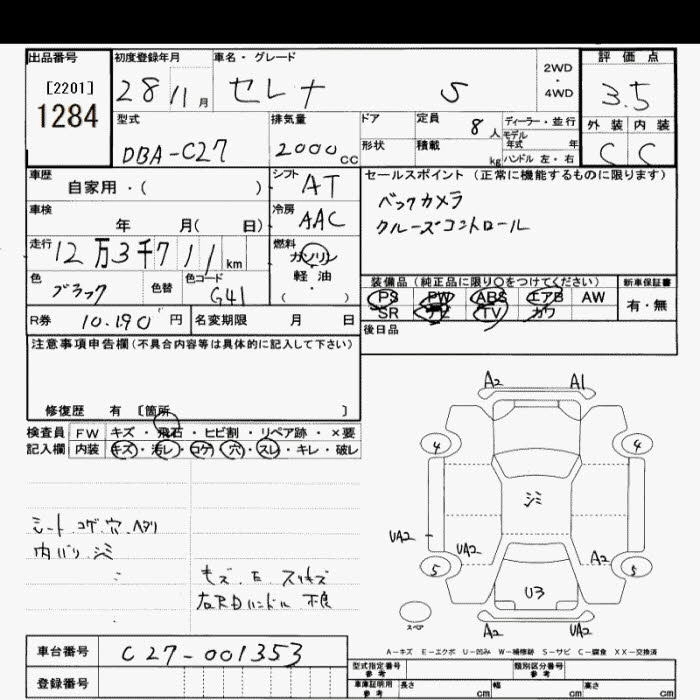 出品番号
[2201]
1284
初度登録年月
28 11 月
車名・グレード
セレナ S
2WD
・
4WD
評価点
3.5
型式
DBA-C27
排気量
2000 CC
ドア
定員
8 人
ディーラー・並行
モデル
年式 年
形状
積載
kg
ハンドル 左・右
外装 内装
C C
車歴
自家用・( )
シフト
AT
車検
年 月( 日)
冷房
AAC
走行
12万3千711 km
燃料
ガソリン
軽・油
( ・ )
色
ブラック
色替
色コード
G41
R券 10.190 円
名変期限 月 日
セールスポイント(正常に機能するものに限ります)
バックカメラ
クルーズコントロール
装備品(純正品に限り○をつけてください)
PS PW ABS エアB AW
SR ナビ TV カワ
新車保証書
有・無
後日品
注意事項申告欄(不具合内容等は具体的に記入して下さい)
修復歴 有 [箇所 ]
検査員 FW キズ・飛石・ヒビ割・リペア跡・×要
記入欄 内装 キズ・汚レ・コゲ・穴・スレ・キレ・破レ
シート コゲ.穴.ヘタリ
内バリ シミ
キズ.E.スリキズ
右RDハンドル 不良
A2 A1
4 4
シミ
UA2
UA2
A2
5 5
U3
スペア
A2 UA2
A-キズ E-エクボ U-凹み W-補修跡 S-サビ C-腐食 XX-交換済
車台番号 C27-001353
登録番号
型式指定番号
参考
類別区分番号
参考
車庫証明用
参考
長さ cm 幅 cm 高さ cm